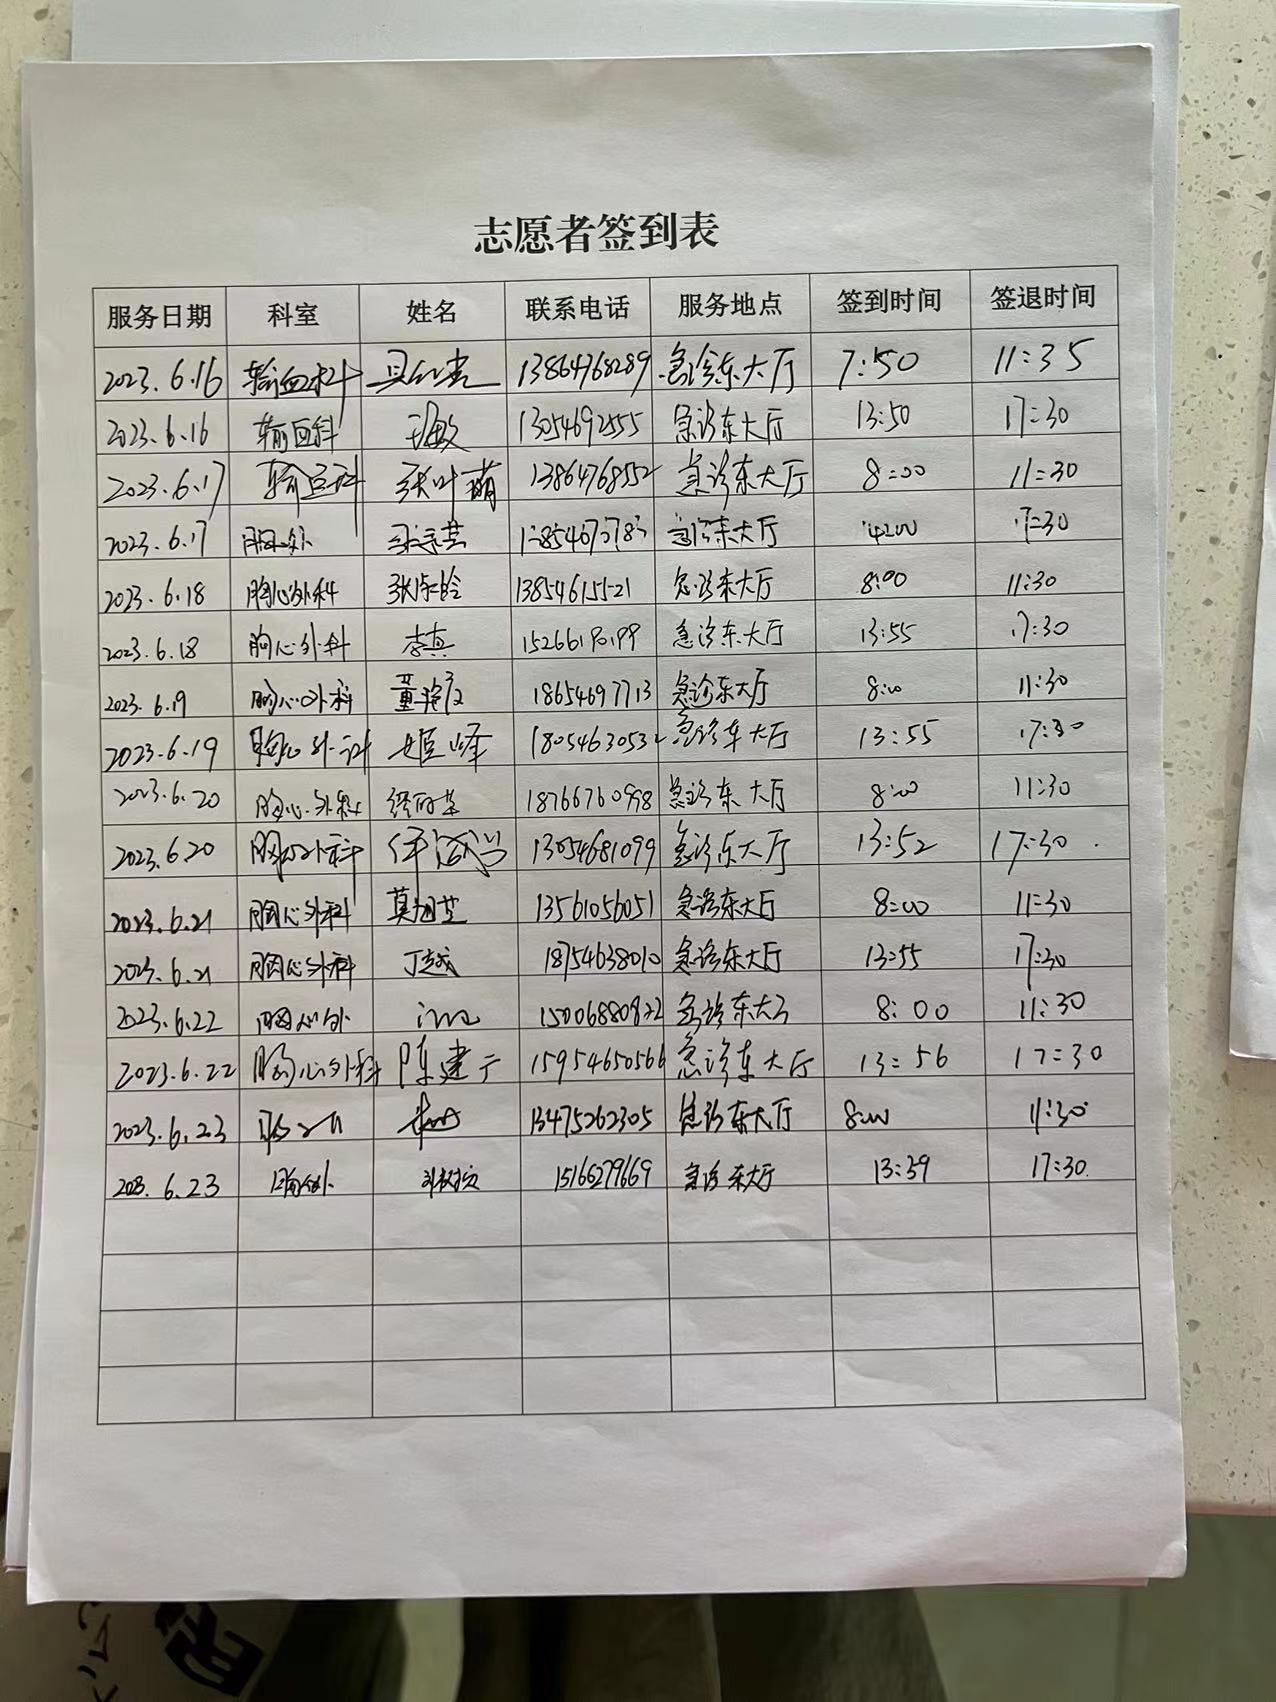 志愿者签到表
服务日期 科室 姓名 联系电话 服务地点 签到时间 签退时间
2023.6.16 输血科 13864768289 急诊东大厅 7:50 11:35
2023.6.16 输血科 王敏 13054692555 急诊东大厅 13:50 17:30
2023.6.17 输血科 张叶蒲 13864768552 急诊东大厅 8:00 11:30
2023.6.17 胸外 急诊东大厅 17:30
2023.6.18 胸心外科 13854615521 急诊东大厅 8:00 11:30
2023.6.18 胸心外科 李真 15266190199 急诊东大厅 13:55 17:30
2023.6.19 胸心外科 18654697713 急诊东大厅 8:00 11:30
2023.6.19 胸心外科 姬峰 18054630532 急诊东大厅 13:55 17:30
2023.6.20 胸心外科 18766760998 急诊东大厅 8:00 11:30
2023.6.20 胸心外科 13054681099 急诊东大厅 13:52 17:30
2023.6.21 胸心外科 13561056051 急诊东大厅 8:00 11:30
2023.6.21 胸心外科 丁越 18754638010 急诊东大厅 13:55 17:30
2023.6.22 胸心外 15006880822 急诊东大厅 8:00 11:30
2023.6.22 胸心外科 陈建 15954650566 急诊东大厅 13:56 17:30
2023.6.23 13475262305 急诊东大厅 8:00 11:30
2023.6.23 胸外 15166279669 急诊东大厅 13:39 17:30